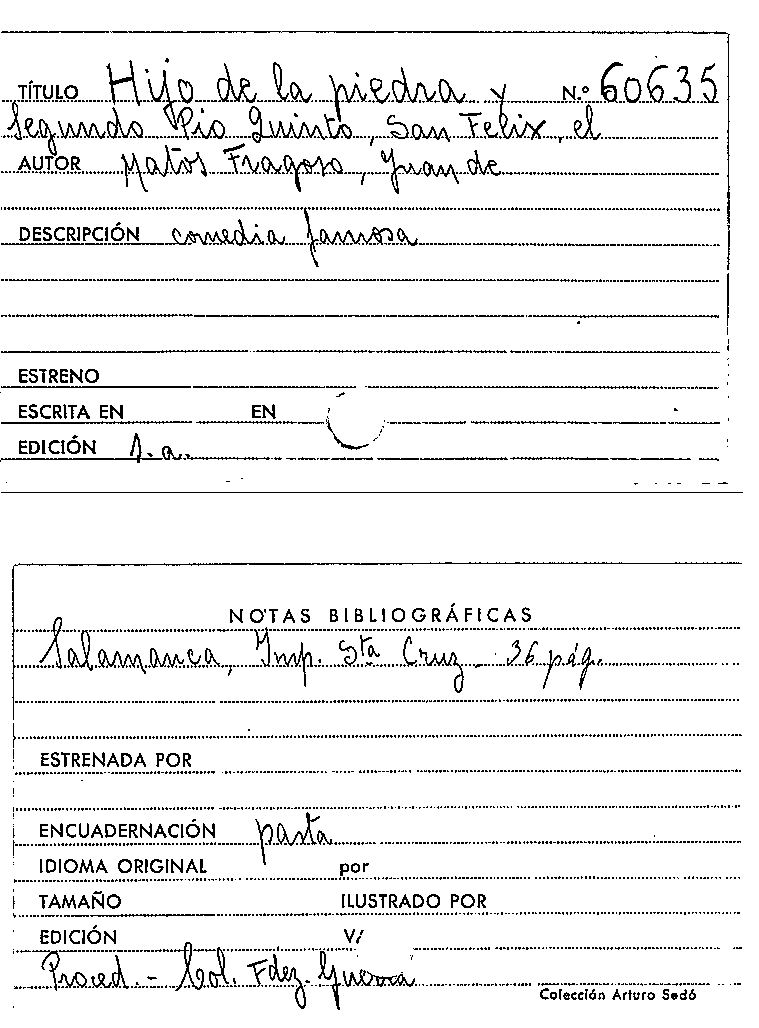 TÍTULO Hijo de la piedra y N.º 60635
Segundo Pio Quinto, San Felix, el
AUTOR Matos Fragoso, Juan de
DESCRIPCIÓN comedia famosa
ESTRENO
ESCRITA EN EN
EDICIÓN s.a.
NOTAS BIBLIOGRÁFICAS
Salamanca, Imp. Sta Cruz - 36 pág.
ESTRENADA POR
ENCUADERNACIÓN pasta
IDIOMA ORIGINAL por
TAMAÑO ILUSTRADO POR
EDICIÓN V/
Proced. - Col. Fdez. Guerra
Colección Arturo Sedó